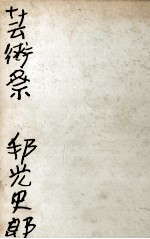 芸術祭 邦光史郎